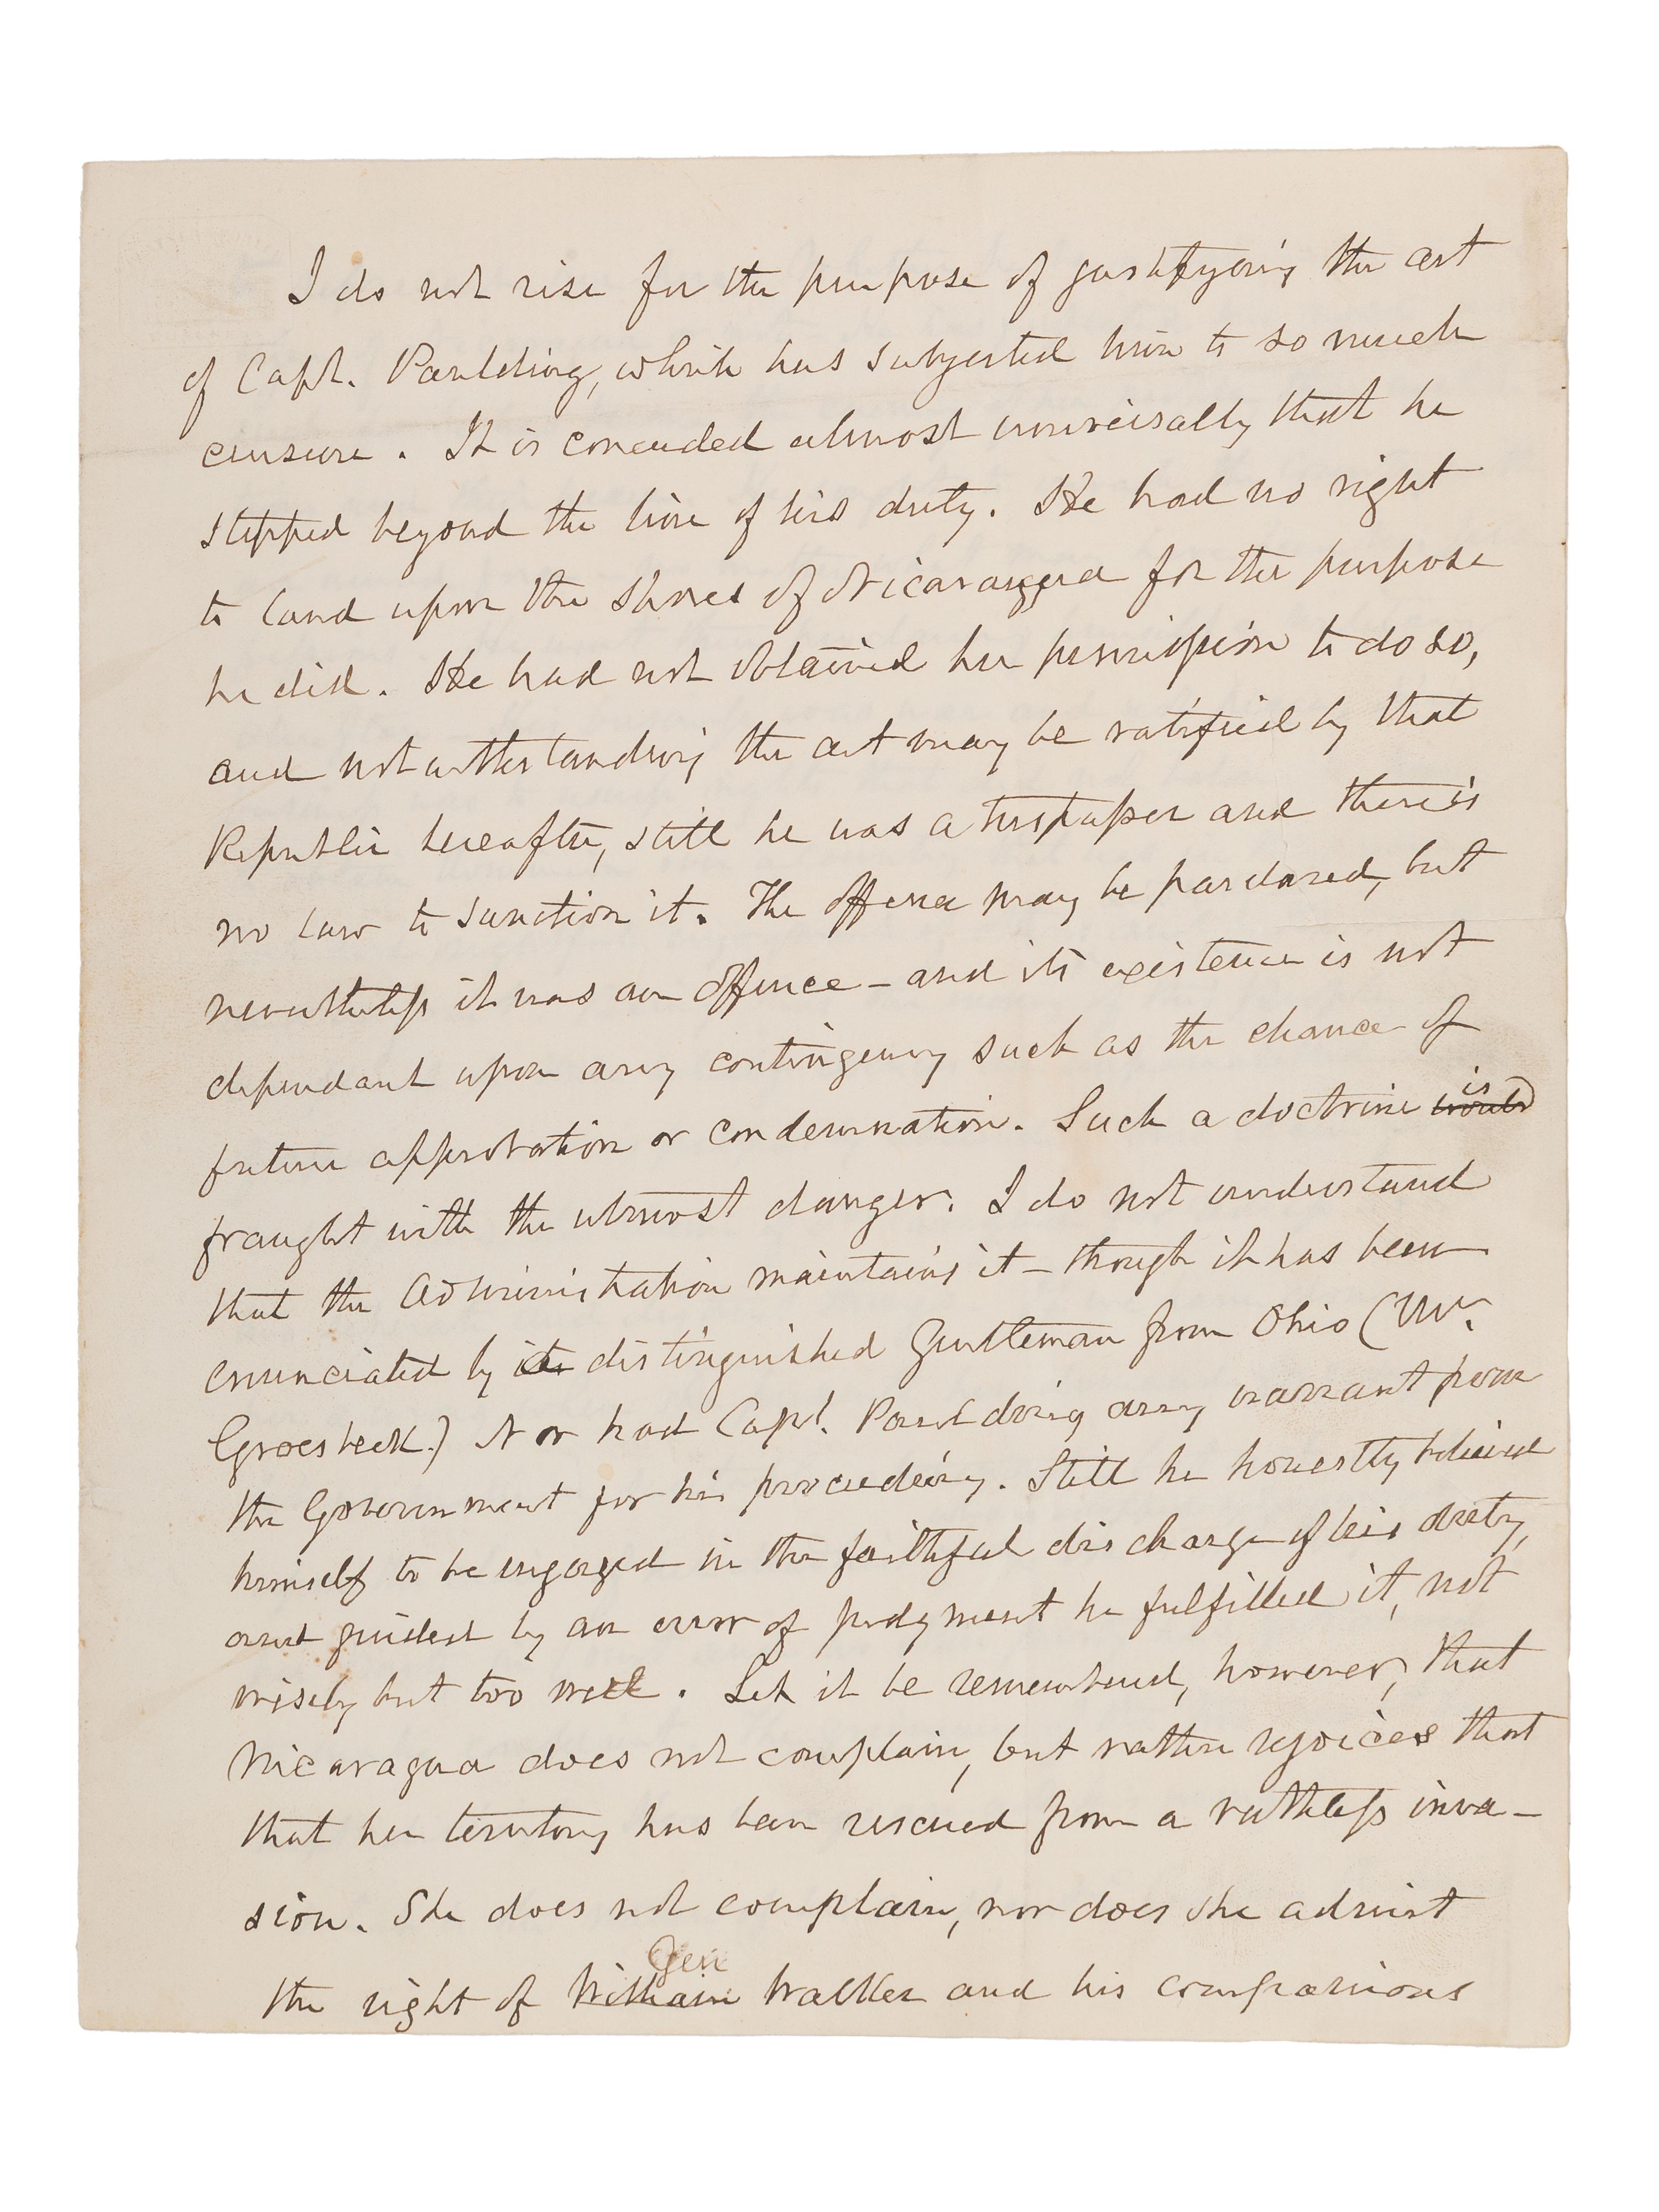 I do not rise for the purpose of justifying the act
of Capt. Paulding, which has subjected him to so much
censure. It is conceded almost universally that he
stepped beyond the line of his duty. He had no right
to land upon the shores of Nicaragua for the purpose
he did. He had not obtained her permission to do so,
and notwithstanding the act may be ratified by that
Republic hereafter, still he was a trespasser and there is
no law to sanction it. The offence may be pardoned, but
nevertheless it was an offence – and its existence is not
dependant upon any contingency such as the chance of
future approbation or condemnation. Such a doctrine would is
fraught with the utmost danger. I do not understand
that the Administration maintains it – though it has been
enunciated by its distinguished Gentleman from Ohio (Mr.
Groesbeck.) Nor had Capt. Paulding any warrant from
the Government for his proceeding. Still he honestly believed
himself to be engaged in the faithful discharge of his duty,
and guided by an error of judgment he fulfilled it, not
wisely but too well. Let it be remembered, however, that
Nicaragua does not complain, but rather rejoices that
that her territory has been rescued from a ruthless inva-
sion. She does not complain, nor does she admit
Gen
the right of William Walker and his companions